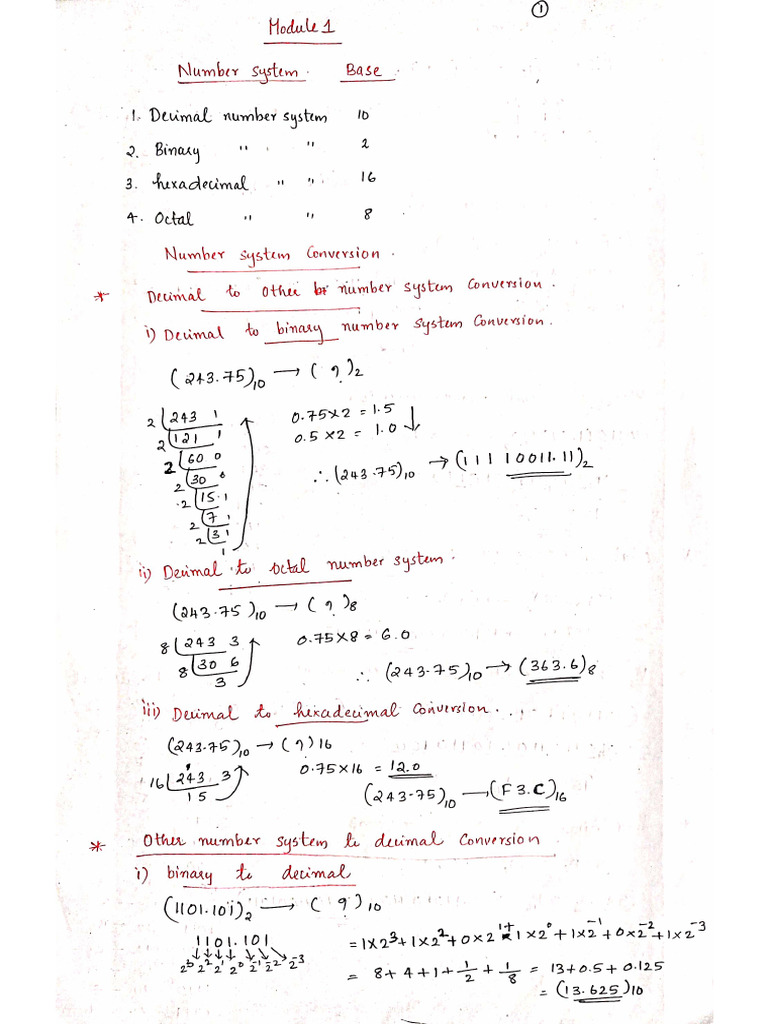 1
Module 1
Number system. Base.
1. Decimal number system 10
2. Binary " " 2
3. hexadecimal " " 16
4. Octal " " 8
Number system Conversion.
* Decimal to Other number system Conversion.
i) Decimal to binary number system Conversion.
(243.75)10 → ( ? )2
2 243 1
2 121 1
2 60 0
2 30 0
2 15 1
2 7 1
2 3 1
1
0.75×2 = 1.5
0.5 ×2 = 1.0
∴ (243.75)10 → (11110011.11)2
ii) Decimal to octal number system.
(243.75)10 → ( ? )8
8 243 3
8 30 6
3
0.75×8 = 6.0
∴ (243.75)10 → (363.6)8
iii) Decimal to hexadecimal Conversion.
(243.75)10 → (?)16
16 243 3
15
0.75×16 = 12.0
(243.75)10 → (F3.C)16
* Other number system to decimal Conversion
i) binary to decimal
(1101.101)2 → ( ? )10
1101.101
2³ 2² 2¹ 2⁰ 2⁻¹ 2⁻² 2⁻³
= 1×2³+1×2²+0×2¹+1×2⁰+1×2⁻¹+0×2⁻²+1×2⁻³
= 8+4+1+1/2+1/8 = 13+0.5+0.125
= (13.625)10